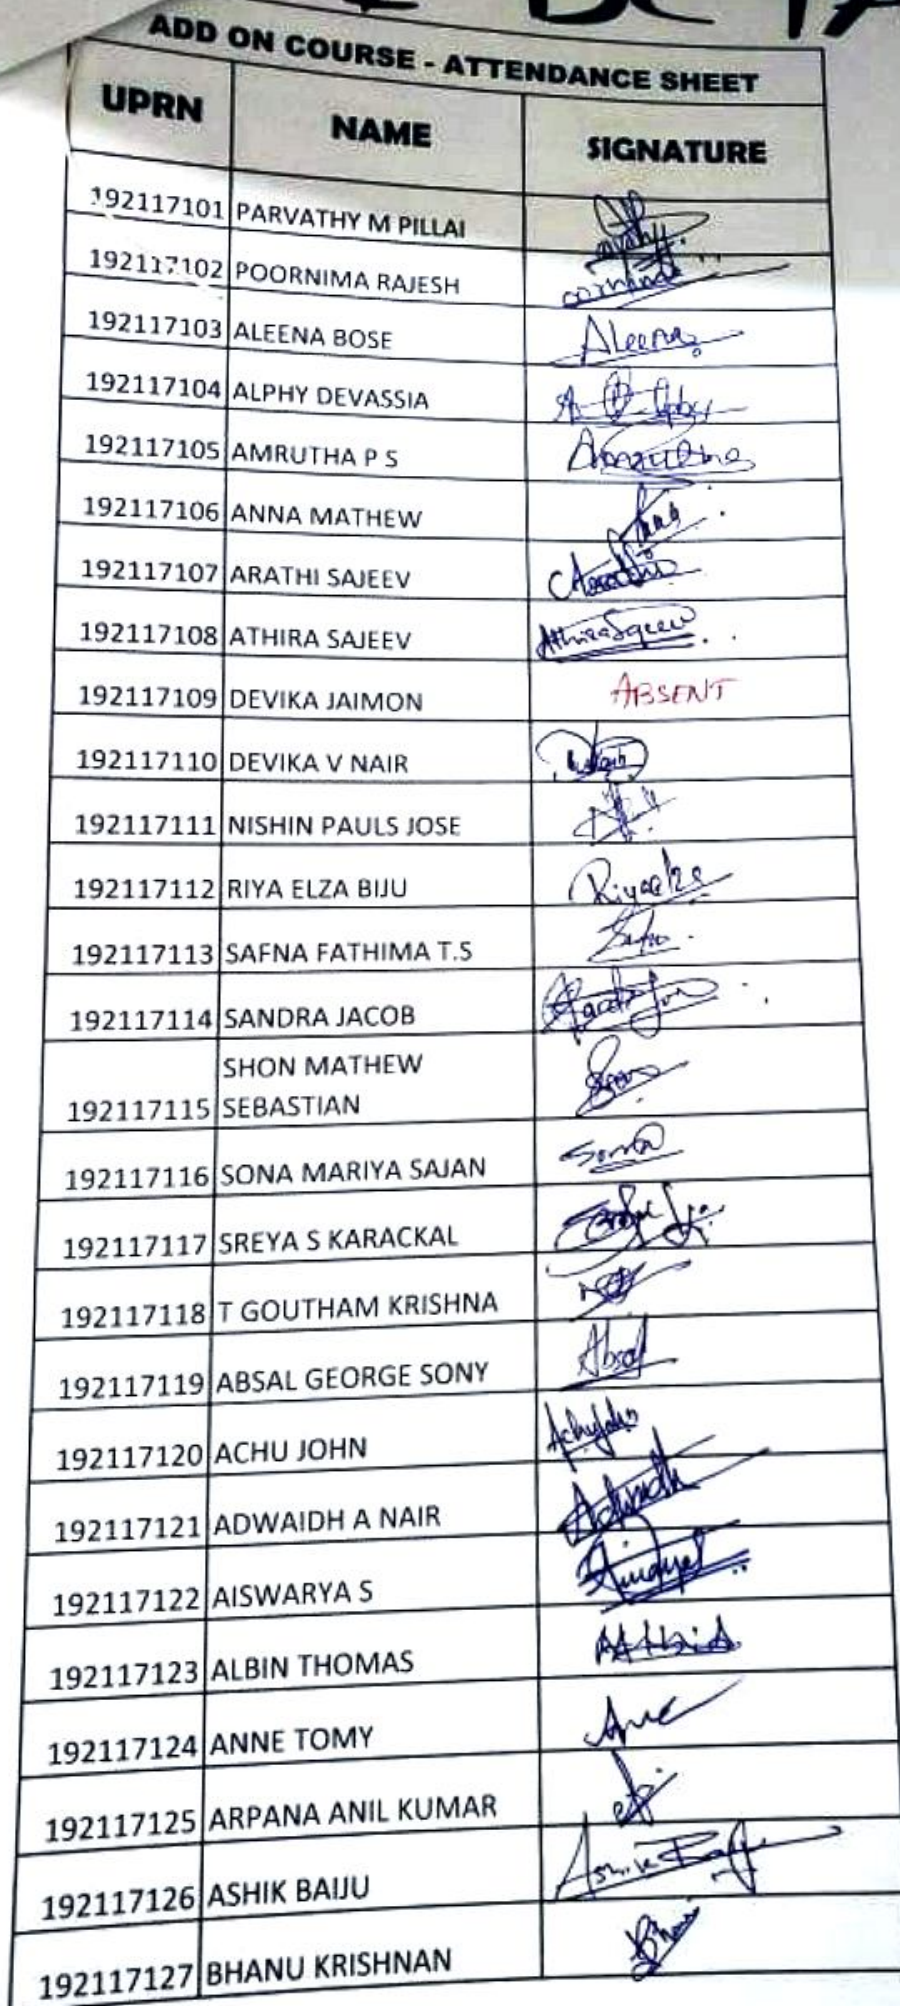 ADD ON COURSE - ATTENDANCE SHEET
UPRN NAME SIGNATURE
192117101 PARVATHY M PILLAI
192117102 POORNIMA RAJESH
192117103 ALEENA BOSE Aleena
192117104 ALPHY DEVASSIA
192117105 AMRUTHA P S
192117106 ANNA MATHEW
192117107 ARATHI SAJEEV
192117108 ATHIRA SAJEEV AthiraSajeev
192117109 DEVIKA JAIMON ABSENT
192117110 DEVIKA V NAIR
192117111 NISHIN PAULS JOSE
192117112 RIYA ELZA BIJU
192117113 SAFNA FATHIMA T.S
192117114 SANDRA JACOB
SHON MATHEW
192117115 SEBASTIAN
192117116 SONA MARIYA SAJAN Sona
192117117 SREYA S KARACKAL
192117118 T GOUTHAM KRISHNA
192117119 ABSAL GEORGE SONY Absal
192117120 ACHU JOHN AchuJohn
192117121 ADWAIDH A NAIR
192117122 AISWARYA S
192117123 ALBIN THOMAS
192117124 ANNE TOMY
192117125 ARPANA ANIL KUMAR
192117126 ASHIK BAIJU
192117127 BHANU KRISHNAN